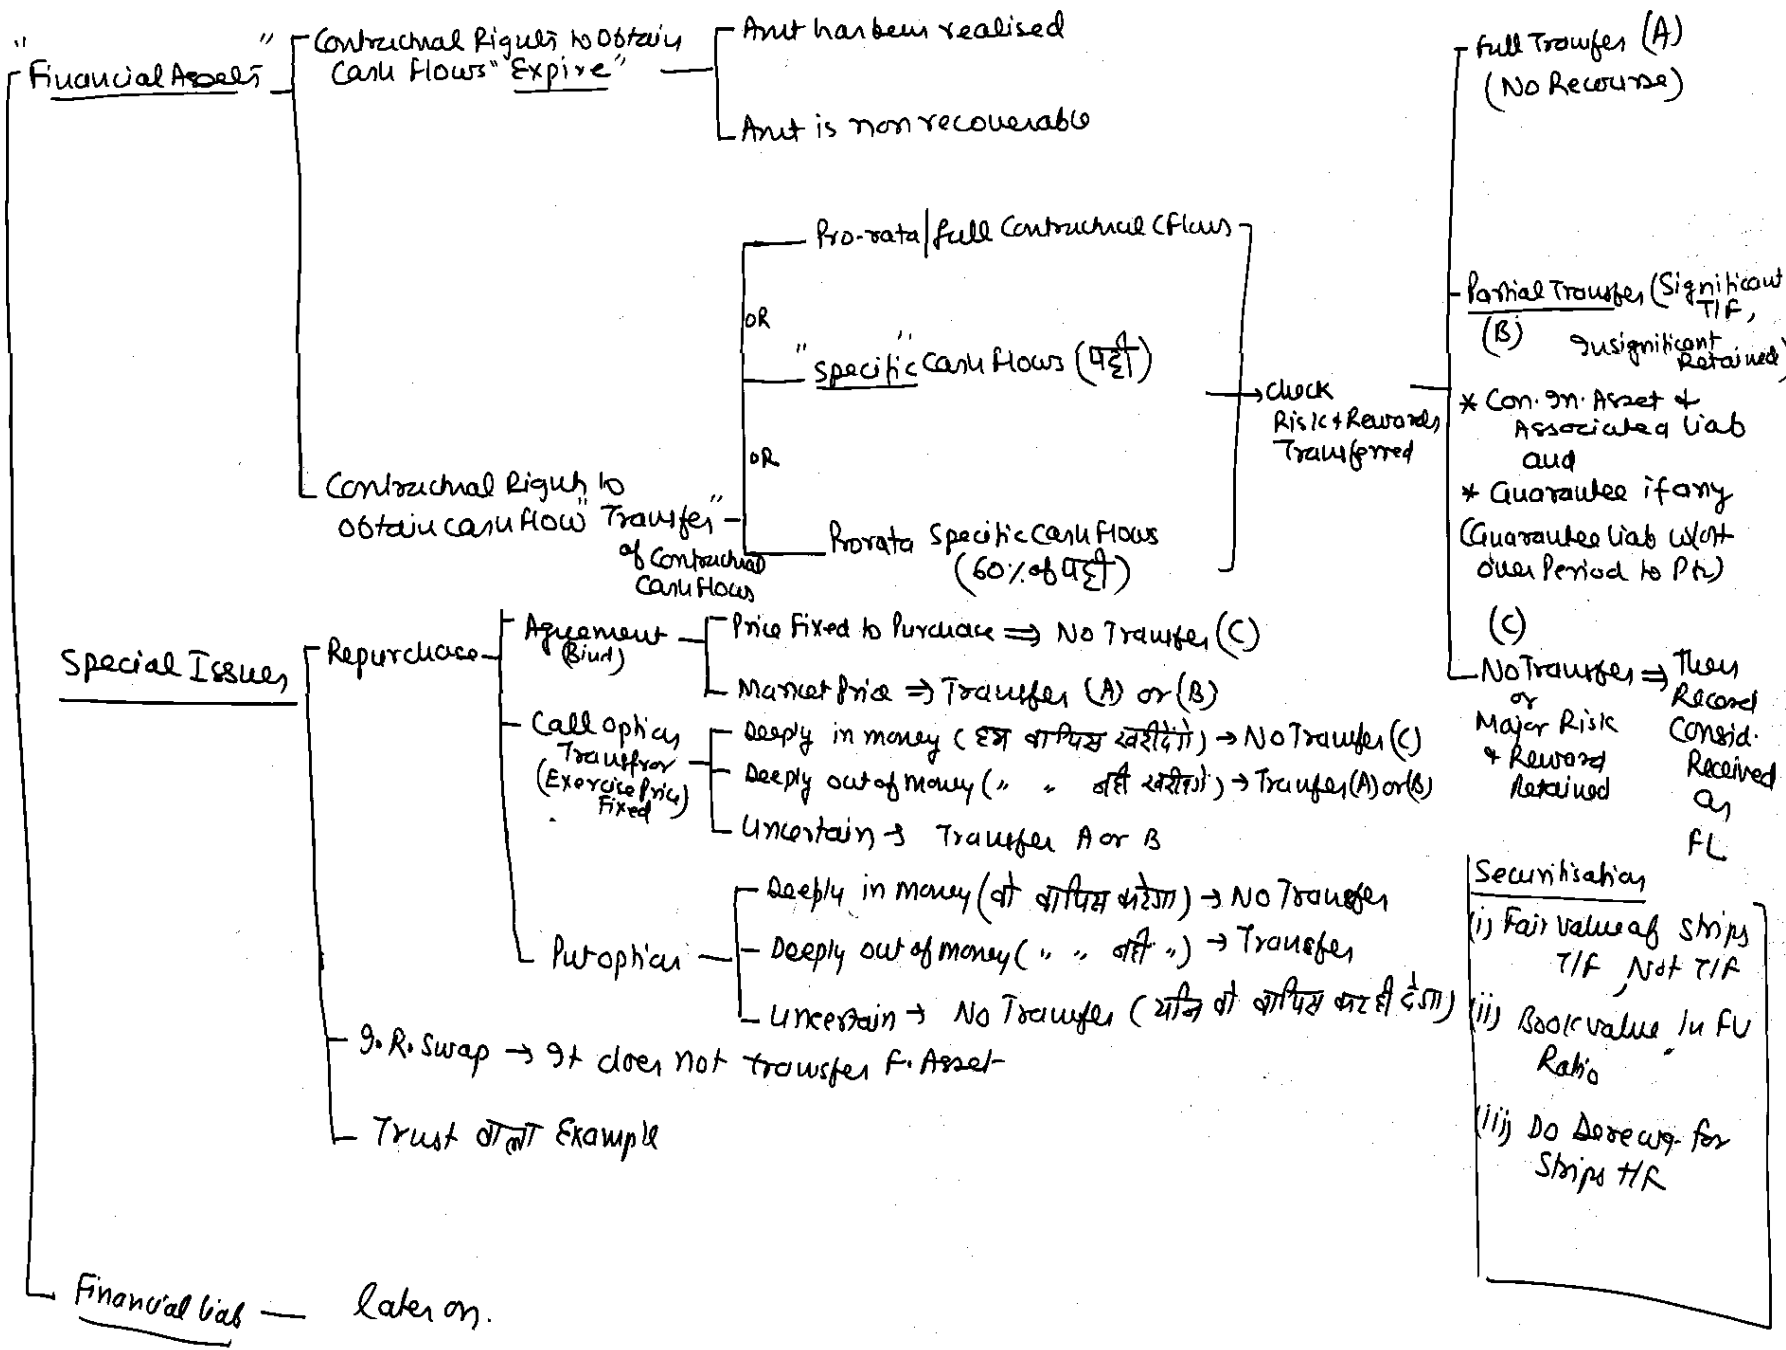 "Financial Assets"
Contractual Rights to Obtain
Cash flows "Expire"
Amt has been realised
Amt is non recoverable
Contractual Right to
obtain cash flow "Transfer"
of Contractual
Cash flows
Pro-rata/full Contractual Cflows
OR
"Specific" Cash flows (पट्टी)
OR
Prorata Specific Cash flows
(60% of पट्टी)
→ Check
Risk & Rewards
Transferred
Full Transfer (A)
(No Recourse)
Partial Transfer (Significant
T/F,
(B) Insignificant
Retained)
* Con. In. Asset &
Associated liab
and
* Guarantee if any
(Guarantee liab w/off
over Period to P&L)
(C)
No Transfer ⇒ Then
or Record
Major Risk Consid.
& Reward Received
Retained as
FL
Special Issues
Repurchase
Agreement
(Bind)
Price Fixed to Purchase ⇒ No Transfer (C)
Market Price ⇒ Transfer (A) or (B)
Call option
Transfror
(Exercise Price
Fixed)
Deeply in money (हम वापिस खरीदेंगे) → No Transfer (C)
Deeply out of money (" " नहीं खरीदेंगे) → Transfer (A) or (B)
Uncertain → Transfer A or B
Put option
Deeply in money (वो वापिस करेगा) → No Transfer
Deeply out of money (" " नहीं ") → Transfer
Uncertain → No Transfer (यानि वो वापिस कर ही देगा)
I.R. Swap → It does not transfer F. Asset
Trust वाला Example
Securitisation
(i) Fair value of strips
T/F, Not T/F
(ii) Book value in FV
Ratio
(iii) Do Derecog. for
Strips t/f
Financial liab — later on.